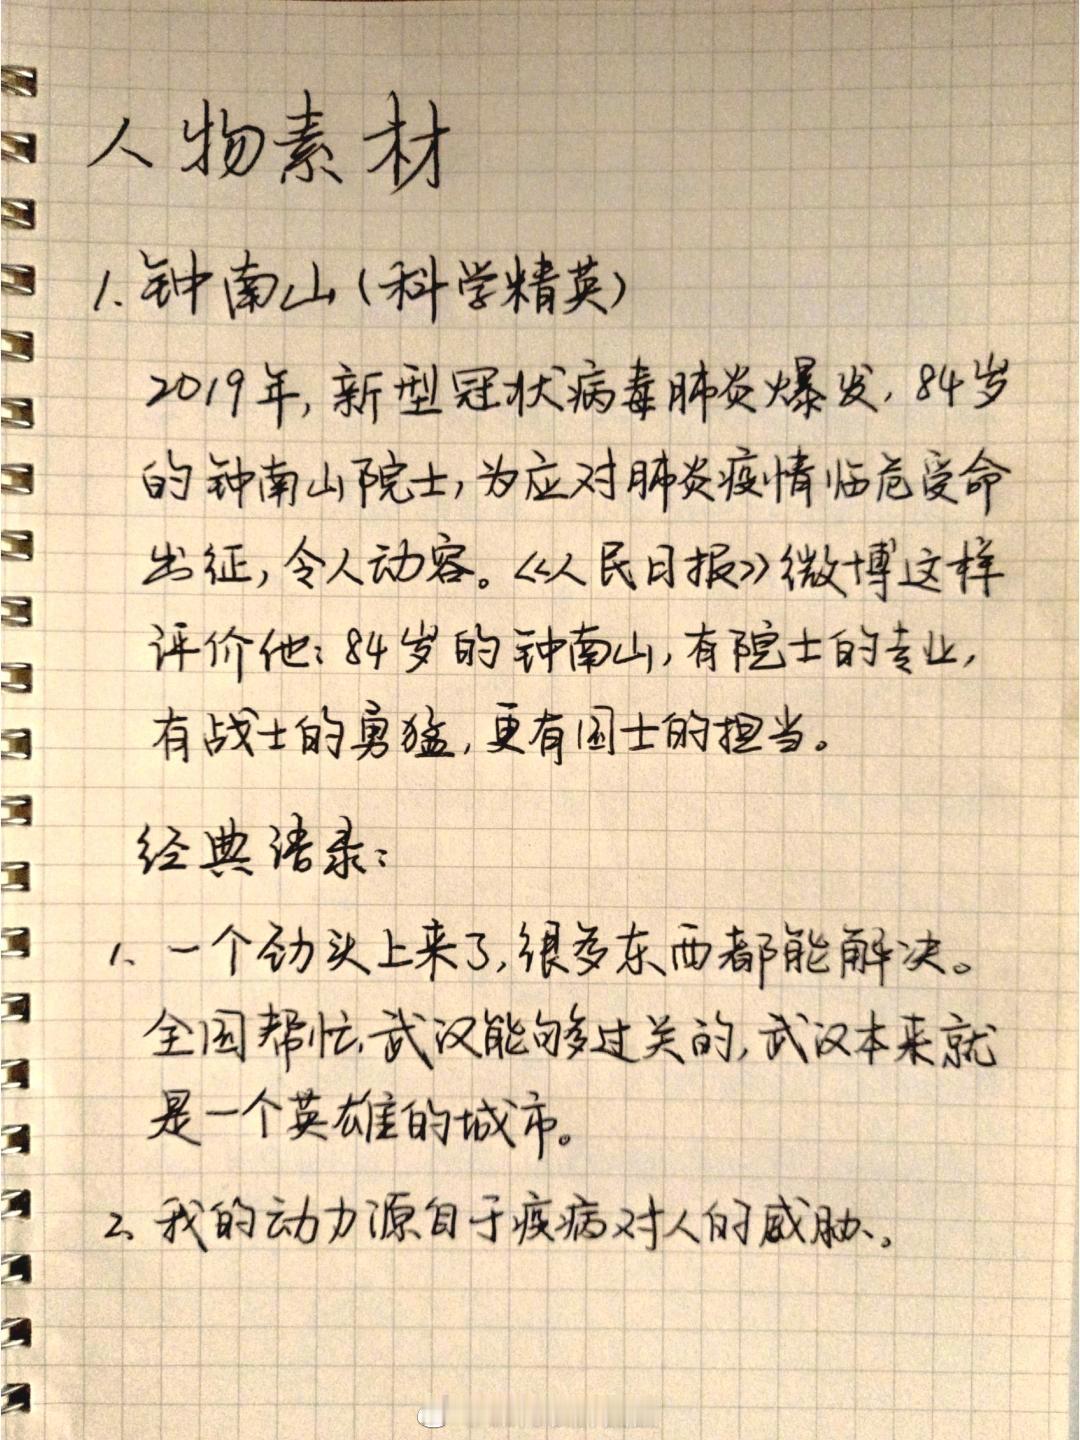 人物素材
1.钟南山(科学精英)
2019年,新型冠状病毒肺炎爆发,84岁
的钟南山院士,为应对肺炎疫情临危受命
出征,令人动容。《人民日报》微博这样
评价他:84岁的钟南山,有院士的专业,
有战士的勇猛,更有国士的担当。
经典语录:
1、一个劲头上来了,很多东西都能解决。
全国帮忙,武汉能够过关的,武汉本来就
是一个英雄的城市。
2、我的动力源自于疾病对人的威胁、。